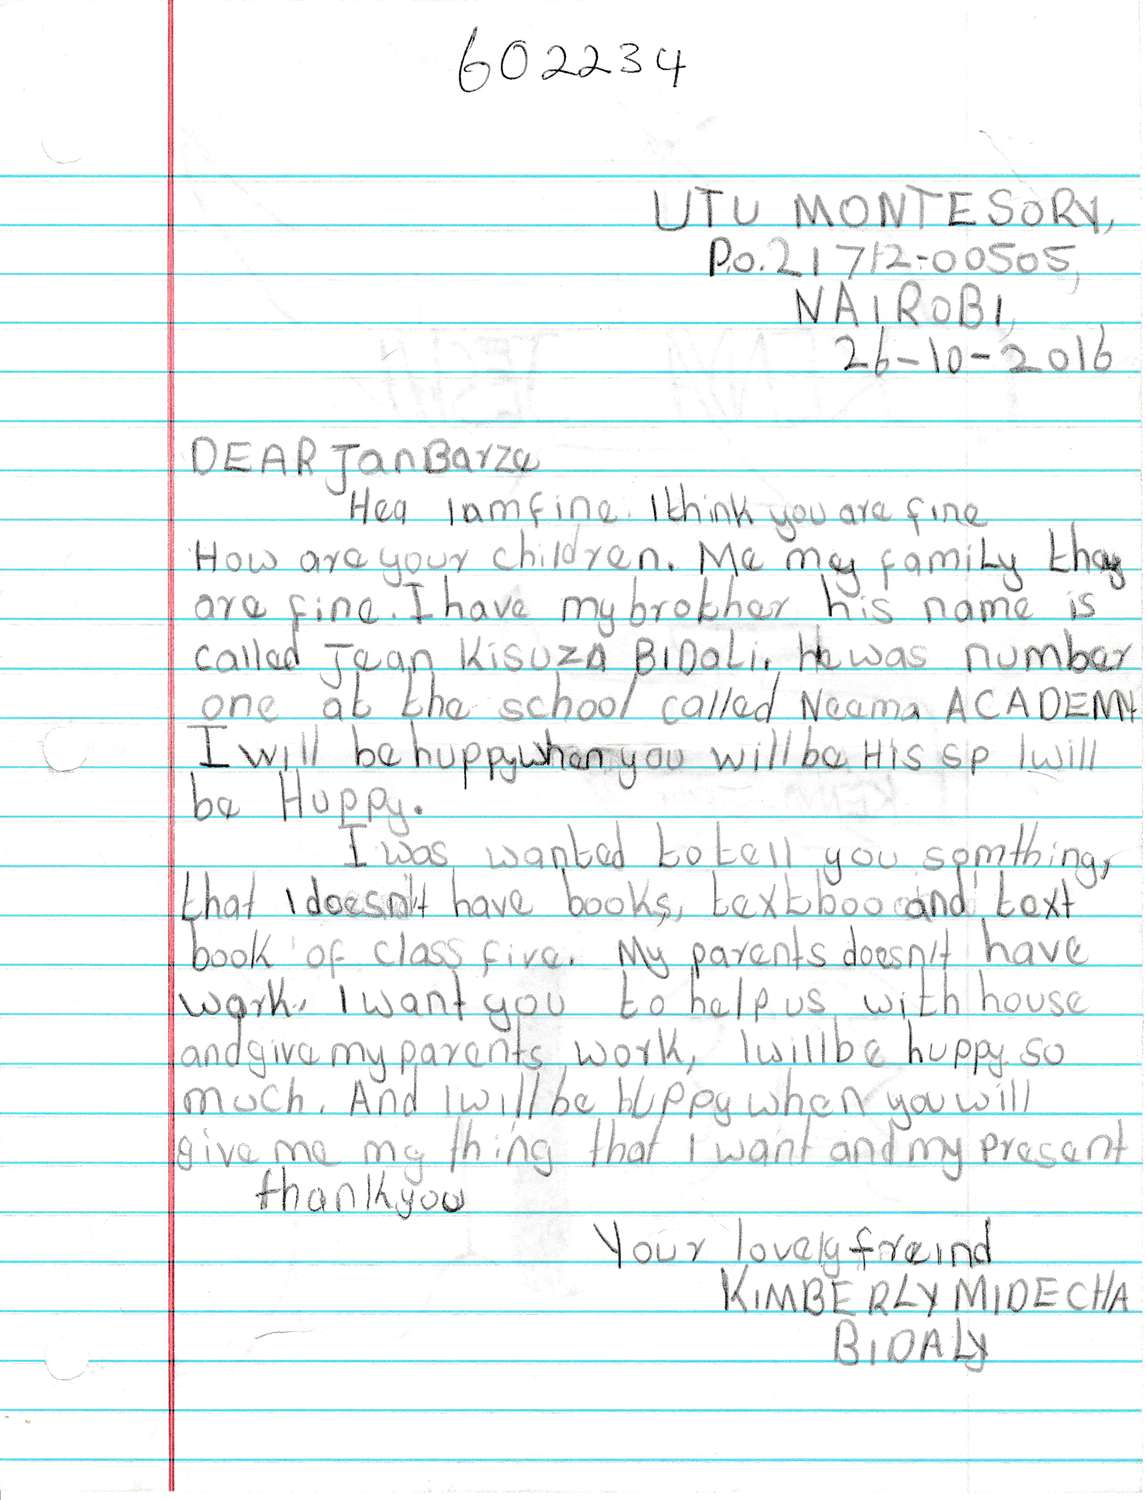 602234
UTU MONTESORY,
P.o. 21712-00505,
NAIROBI,
26-10-2016
DEAR Jan Barze
Hea I am fine. I think you are fine
How are your children. Me my family they
are fine. I have my brother his name is
called Jean KISUZA BIDALI. He was number
one at the school called Neema ACADEMY
I will be huppy when you will be His sp I will
be Huppy.
I was wanted to tell you somthing,
that I doesn't have books, textboo and text
book of class five. My parents doesn't have
work. I want you to help us with house
and give my parents work, I will be huppy so
much. And I will be huppy when you will
give me my thing that I want and my present
thankyou
Your lovely freind
KIMBERLY MIDECHA
BIDALY